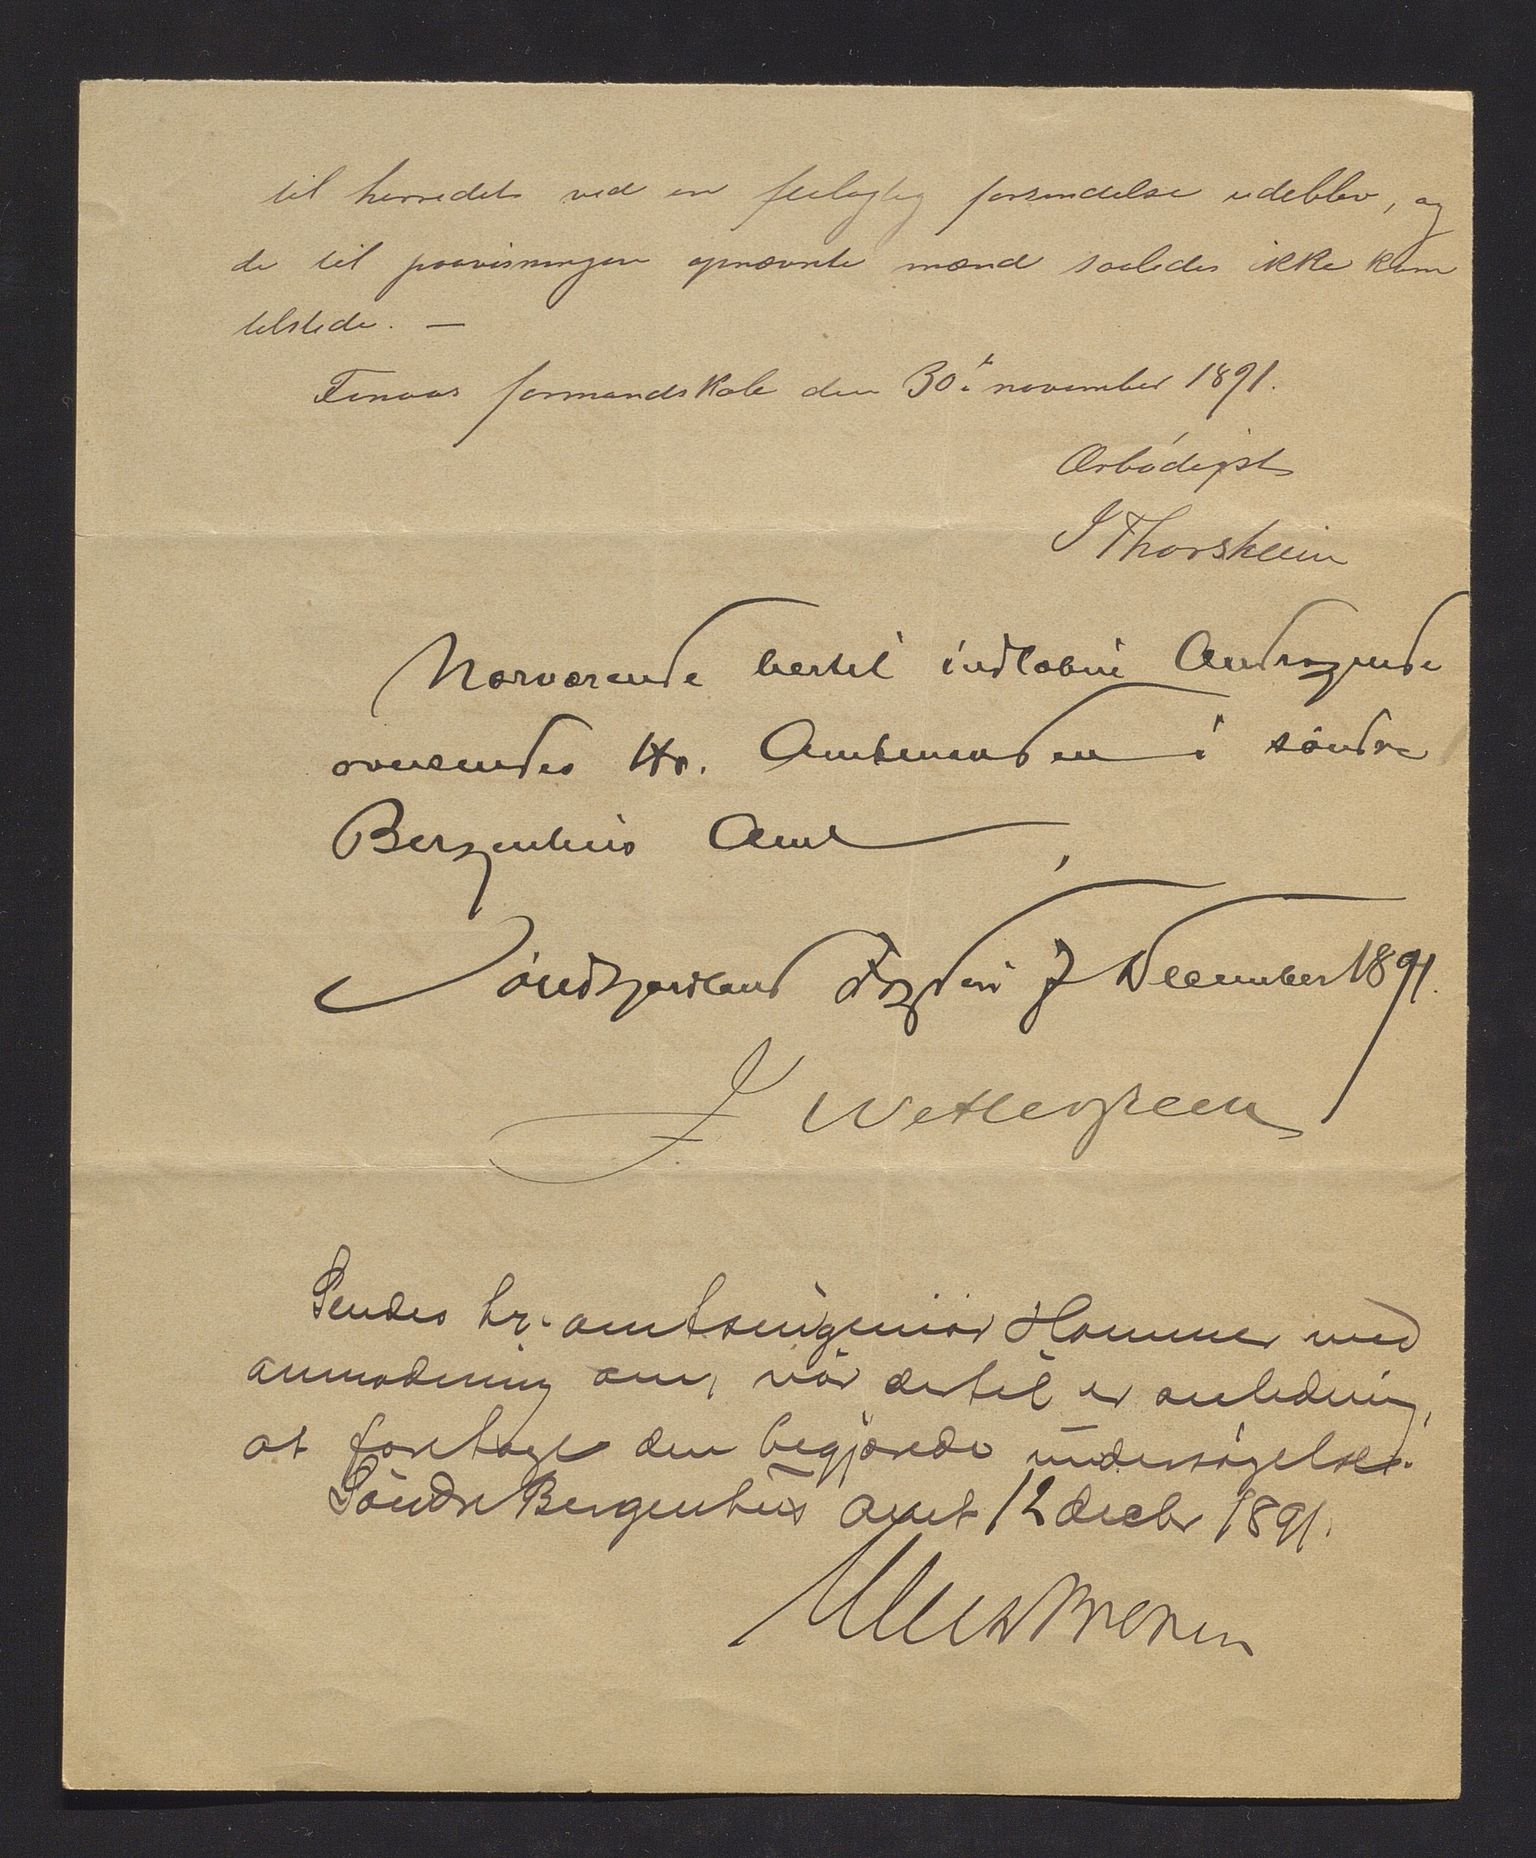 til herredet ved en feilagtig forsendelse udeblev, og
de til paavisningen opnævnte mænd saaledes ikke kom
tilstede. —
Finaas formandskab den 30te november 1891.
Ærbødigst
J Thorsheim
Nærværende hertil indløbne Andragende
oversendes Hr. Amtmanden i søndre
Bergenhus Amt,
Søndhordland Fogderi 7 December 1891.
J Wettergreen
Sendes hr. amtsingeniør Hammer med
anmodning om, når dertil er anledning,
at foretage den begjærede undersøgelse.
Søndre Bergenhus amt 12 decbr 1891.